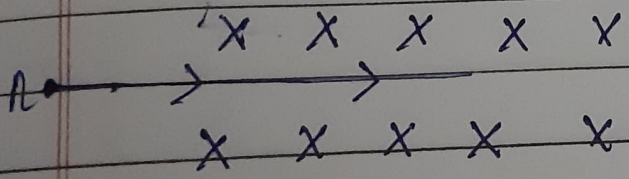 X X X X X
n
X X X X X